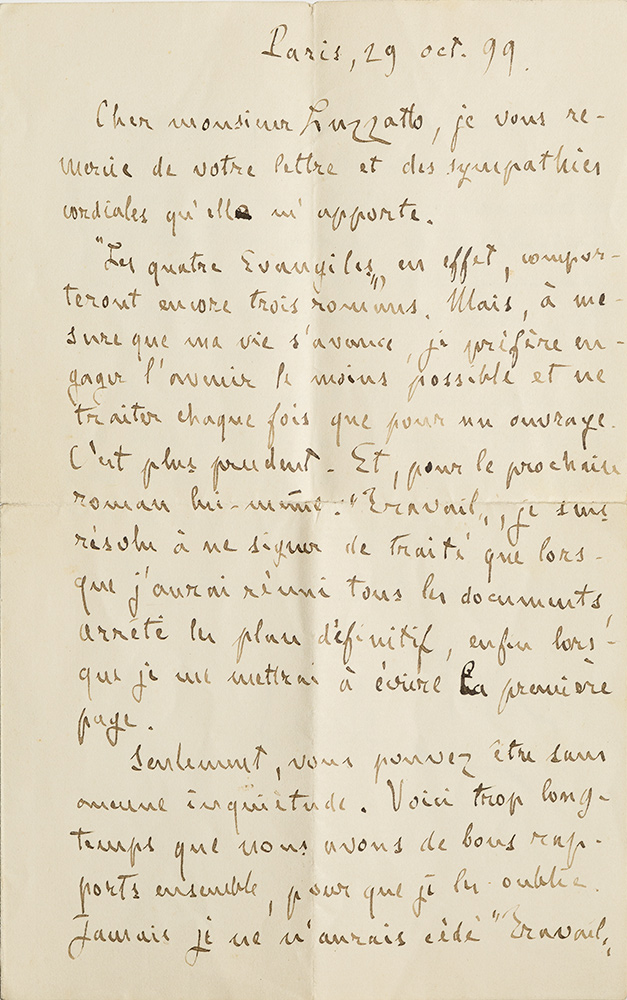 Paris, 29 oct. 99.
Cher monsieur Luzzatto, je vous re-
mercie de votre lettre et des sympathies
cordiales qu'elle m'apporte.
"Les quatre Evangiles", en effet, compor-
teront encore trois romans. Mais, à me-
sure que ma vie s'avance, je préfère en-
gager l'avenir le moins possible et ne
traiter chaque fois que pour un ouvrage.
C'est plus prudent. Et, pour le prochain
roman lui-même: "Travail", je suis
résolu à ne signer de traité que lors-
que j'aurai réuni tous les documents,
arrêté le plan définitif, enfin lors-
que je me mettrai à écrire la première
page.
Seulement, vous pouvez être sans
aucune inquiétude. Voici trop long-
temps que nous avons de bons rap-
ports ensemble, pour que je les oublie.
Jamais je ne n'aurais cédé "Travail",